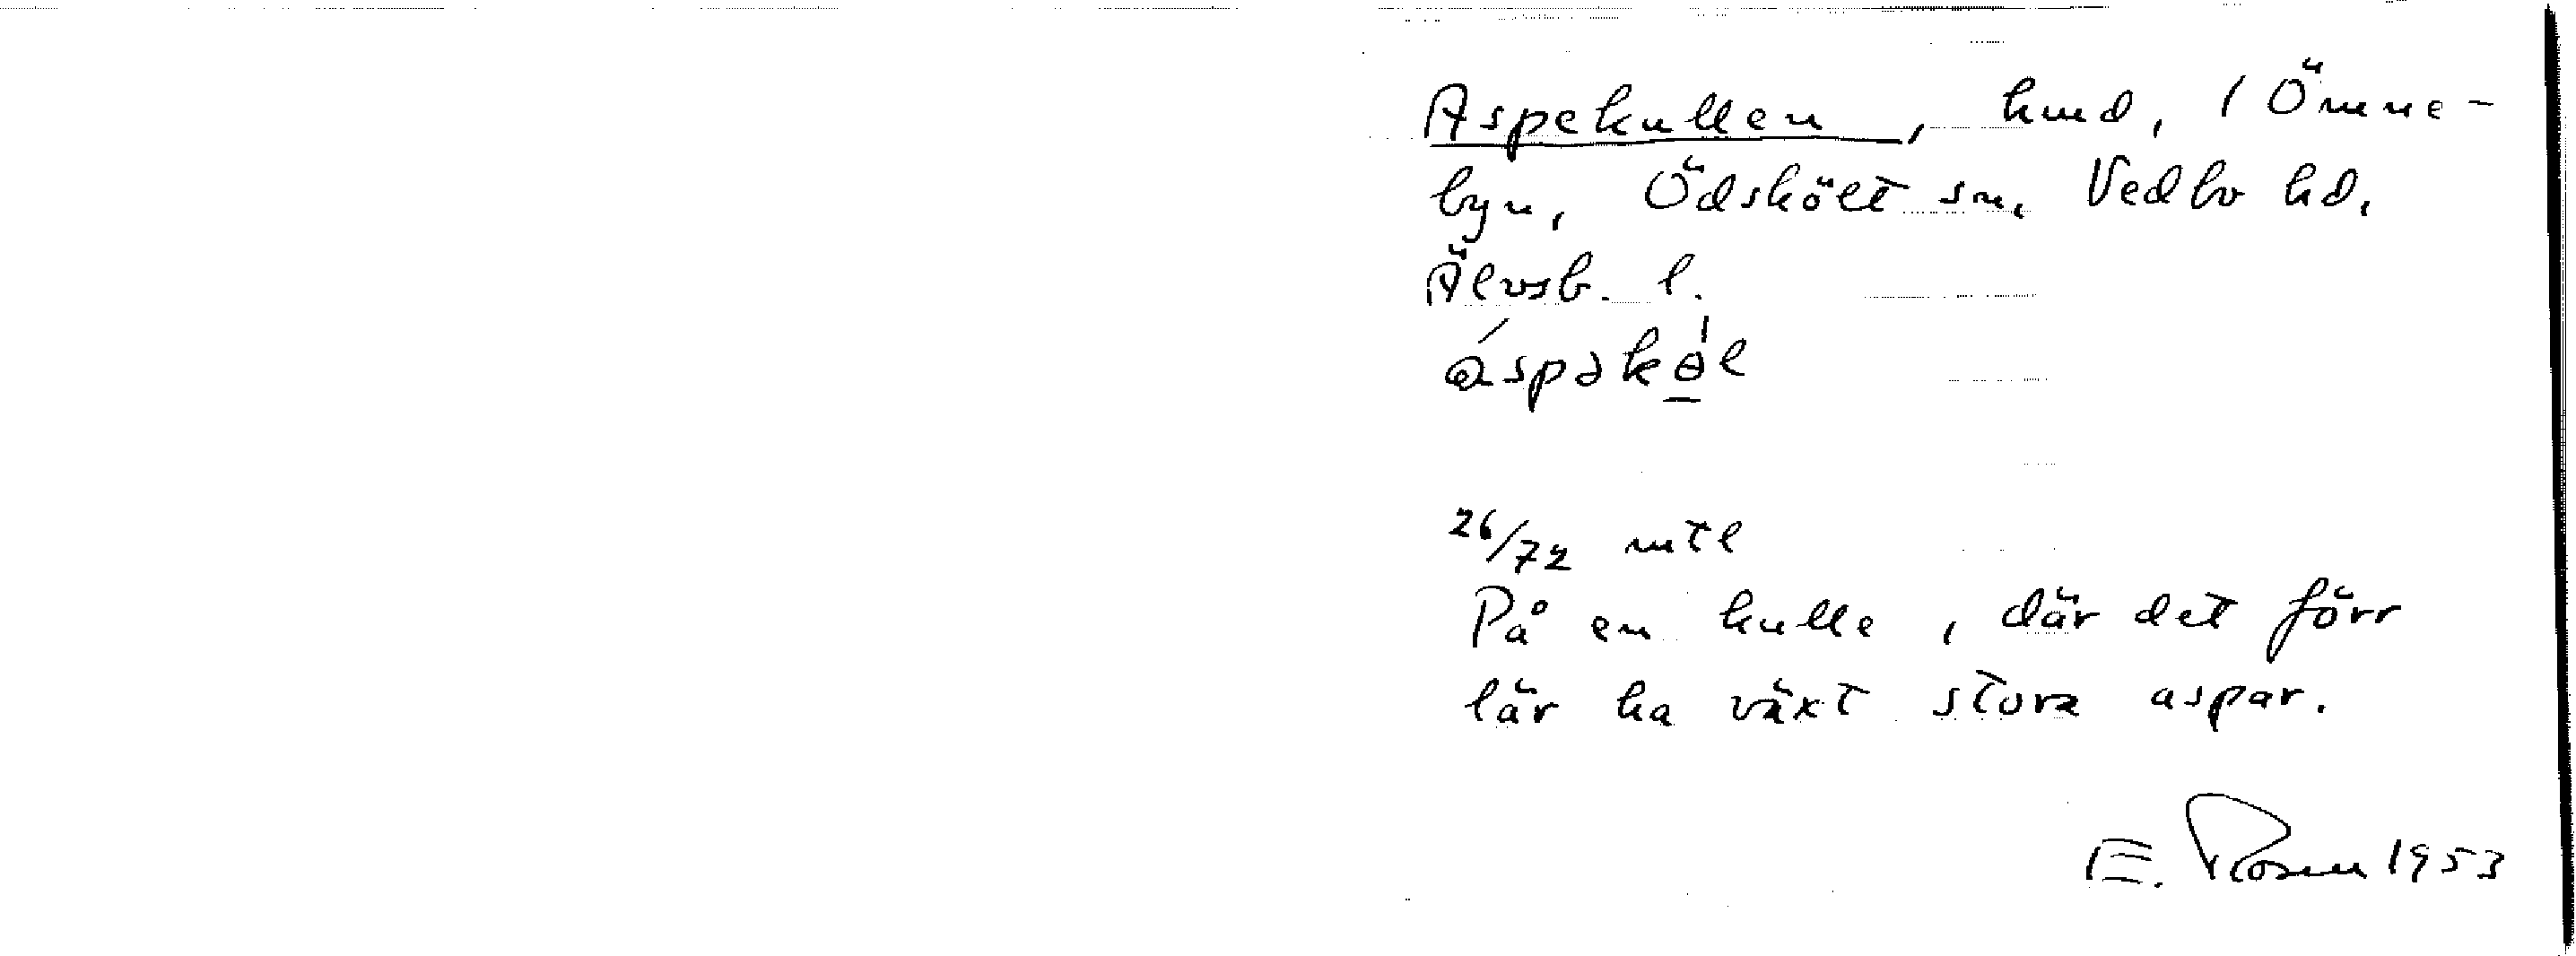 Aspekullen, hmd, 1 Ömme-
byn, Ödskölt sn, Vedbo hd,
Älvsb. l.
26/72 mtl
På en kulle, där det förr
lär ha växt stora aspar.
E. Rosen 1953